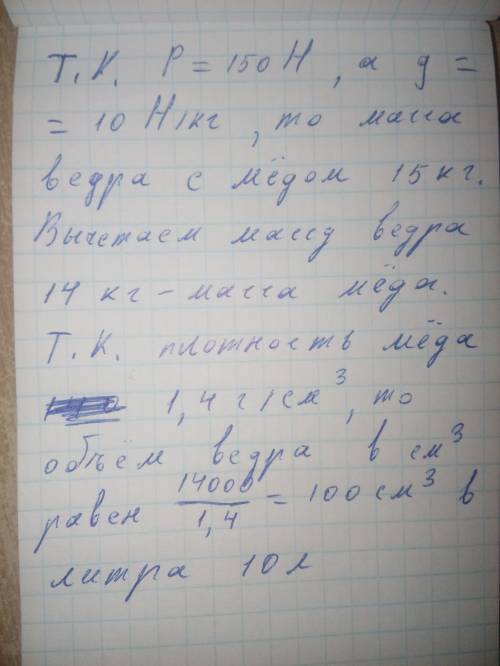 Т.К. P = 150 Н, а g =
= 10 Н/кг, то масса
ведра с мёдом 15 кг.
Вычетаем массу ведра
14 кг - масса мёда.
Т.К. плотность мёда
1,4 г/см³, то
объём ведра в см³
равен 14000/1,4 = 100 см³ в
литра 10 л